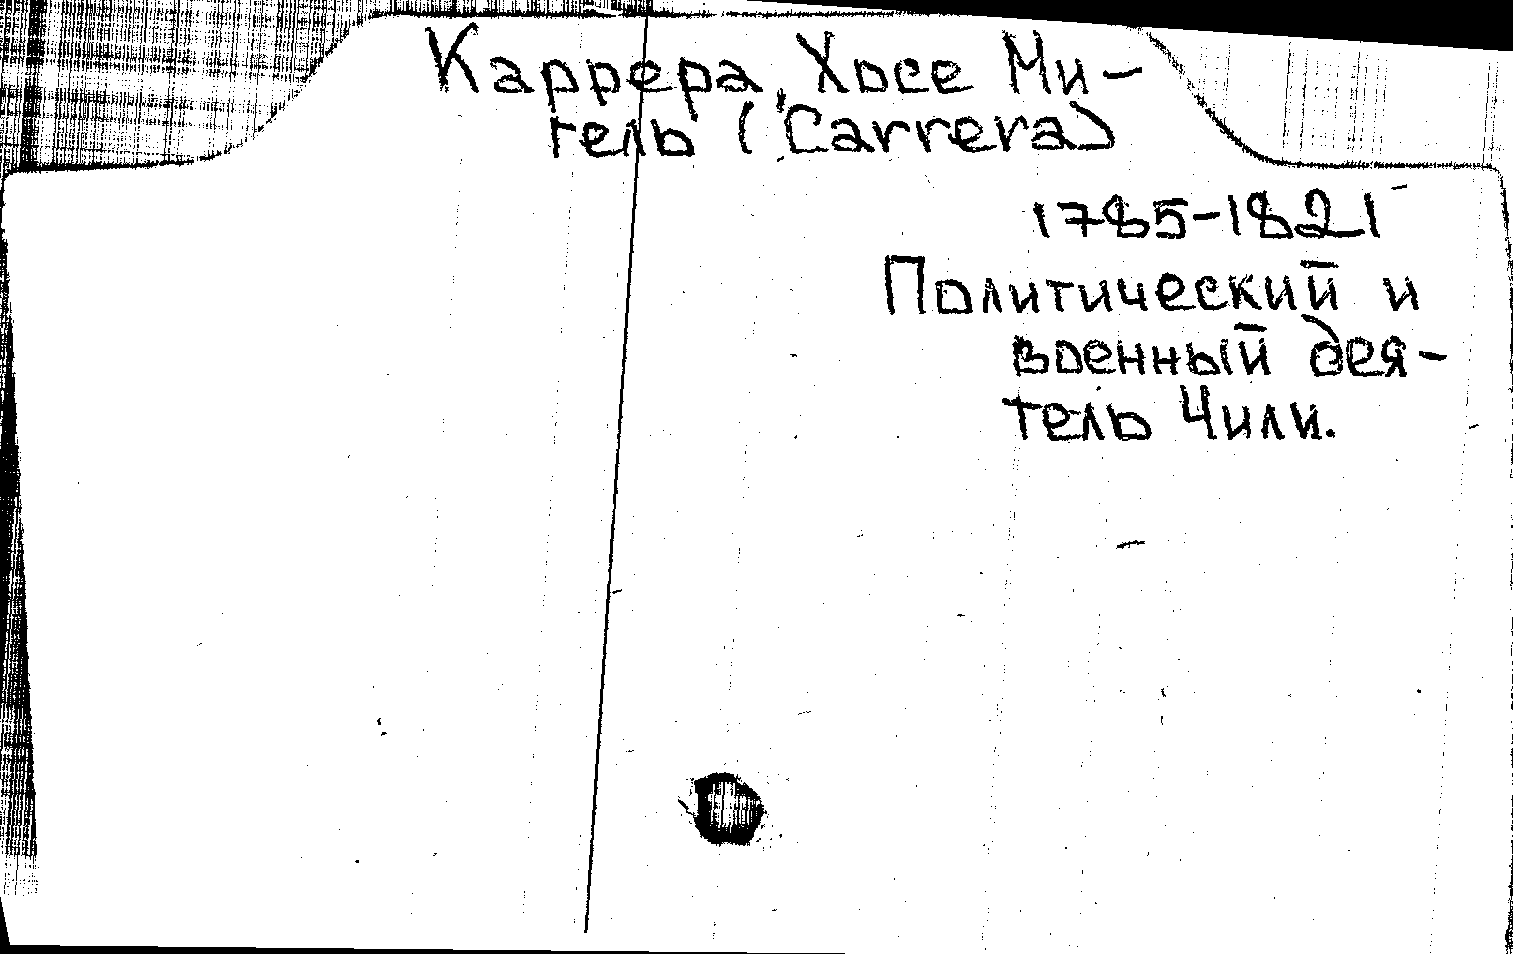 Каррера, Хосе Ми-
гель (Carrera)
1785-1821
Политический и
военный дея-
тель Чили.